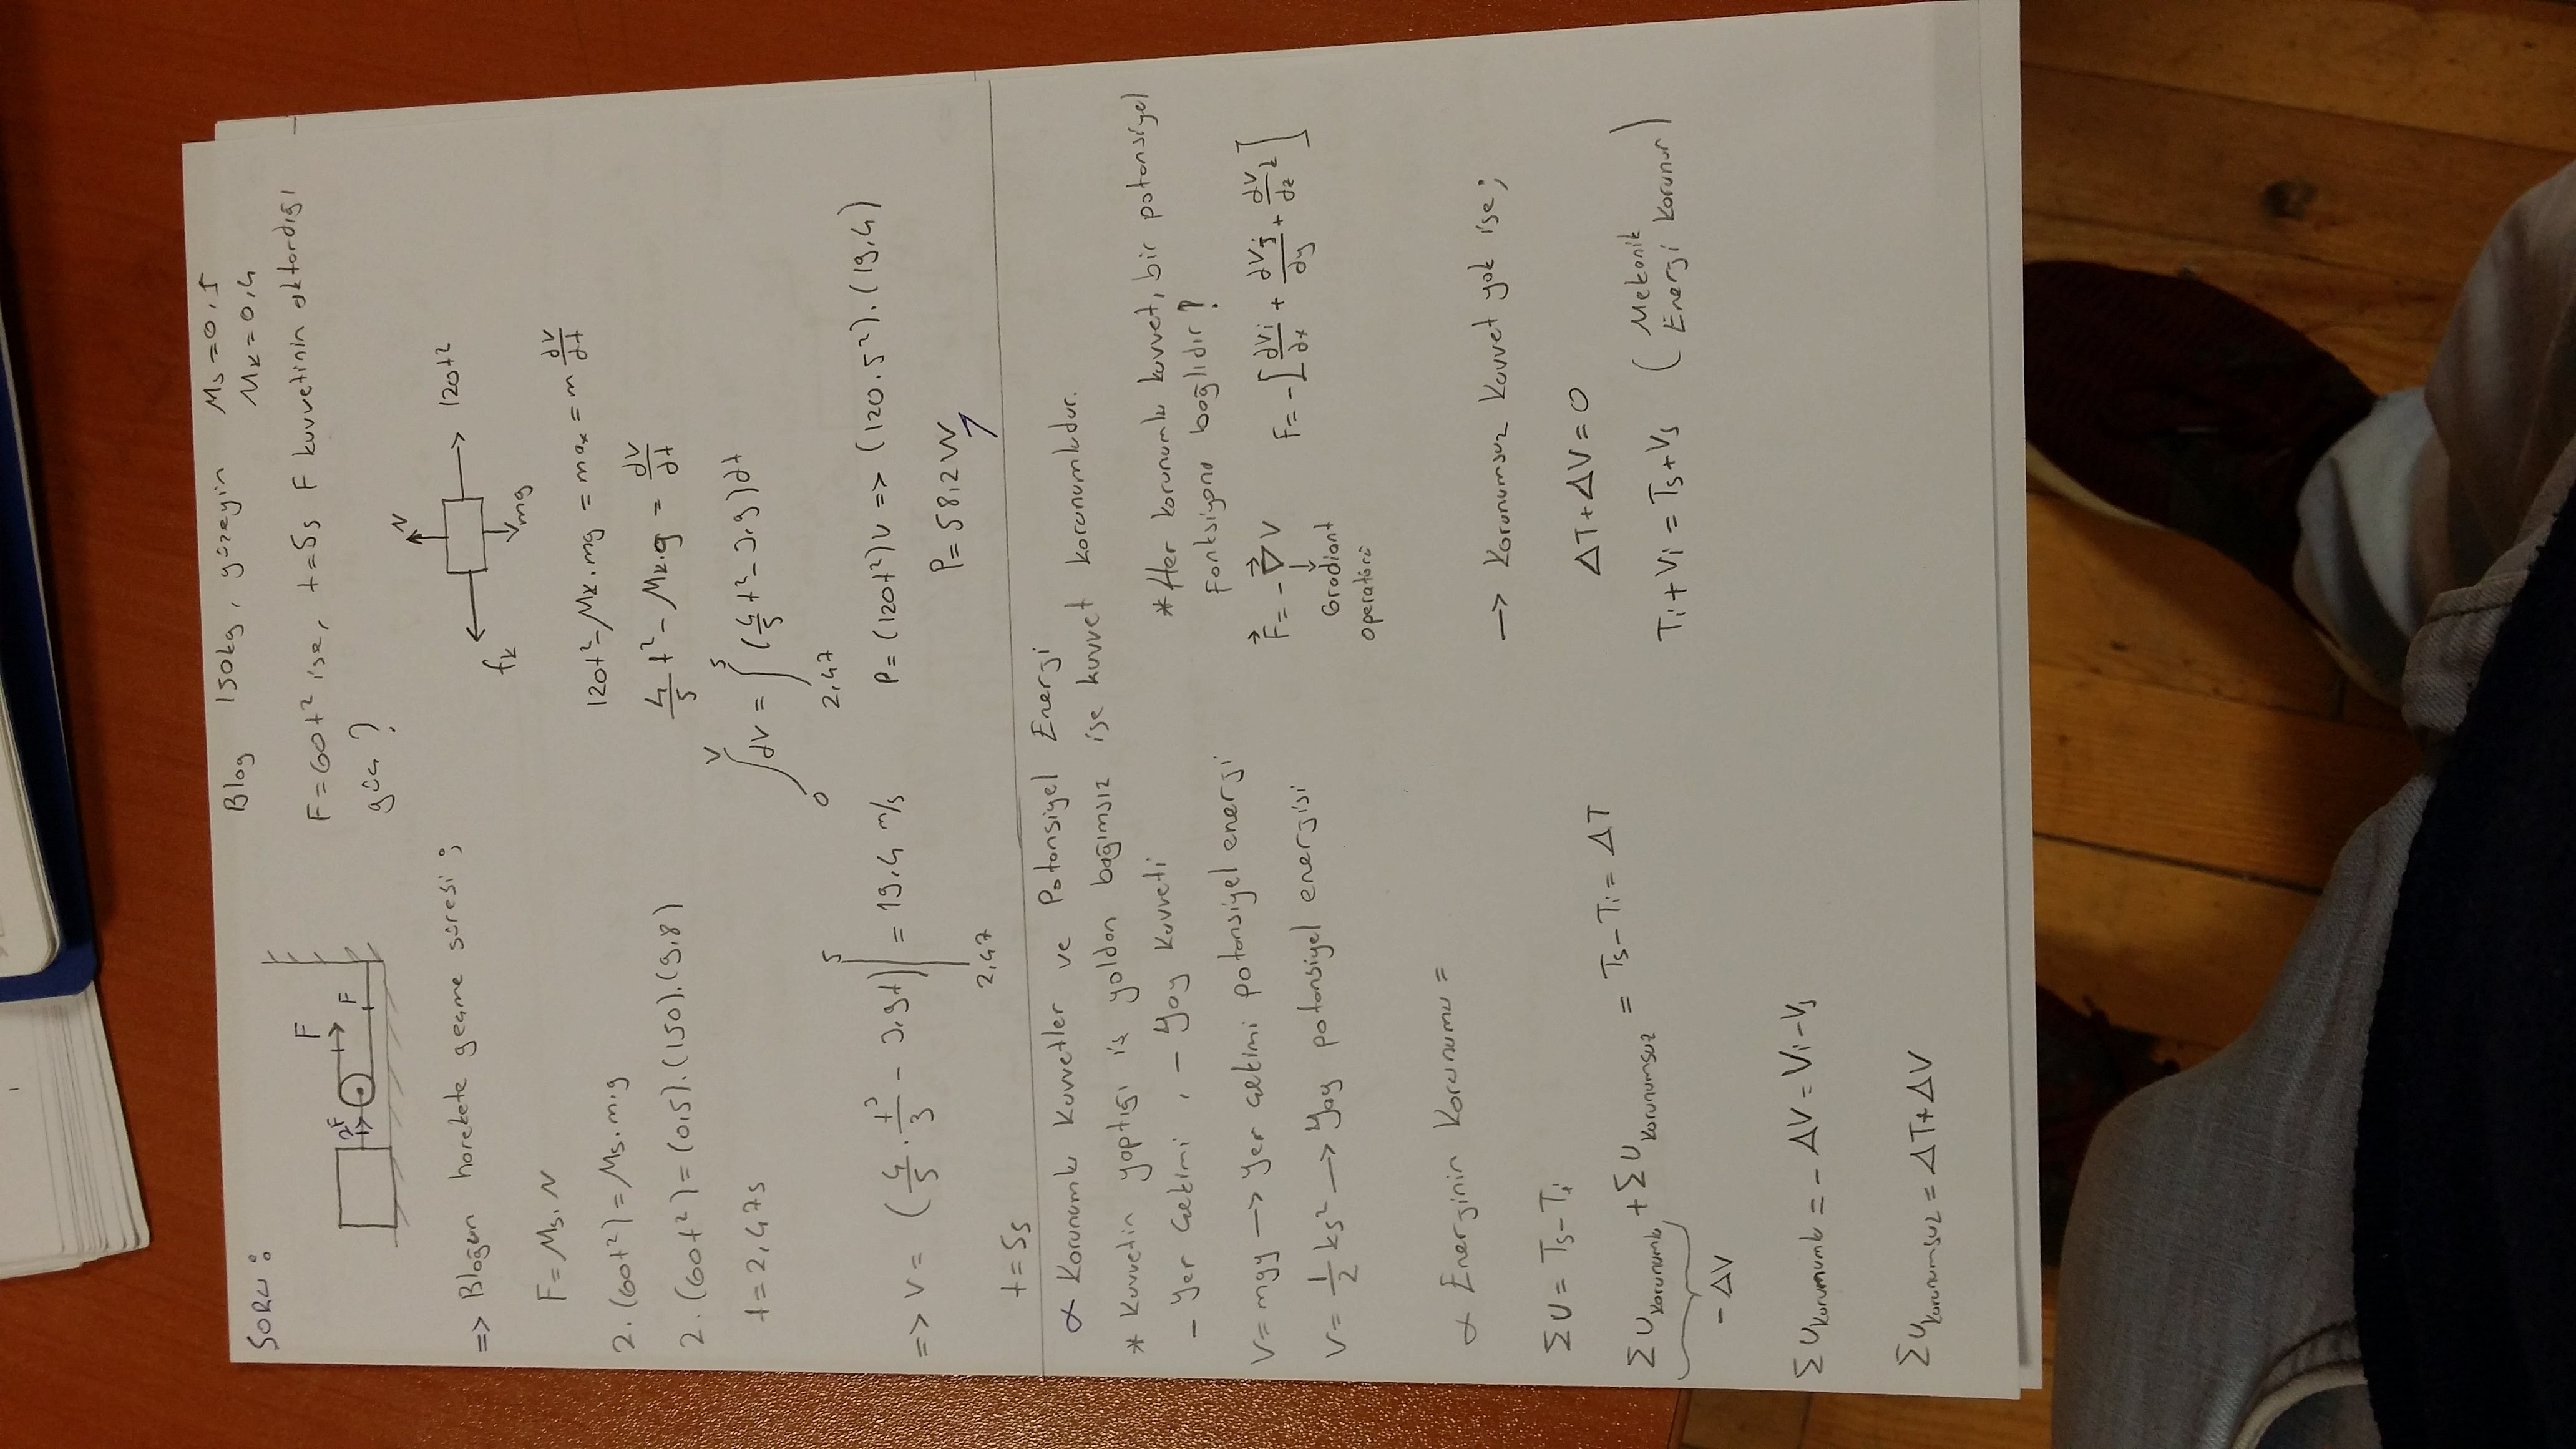 SORU:
Blog 150kg, yüzeyin Ms=0,5
Mk=0,4
F=60t² ise, t=5s F kuvvetinin aktardığı
güç?
F
2F
F
=> Bloğun harekete geçme süresi;
F=Ms.N
2.(60t²)=Ms.m.g
2.(60t²)=(0,5).(150).(9,8)
t=2,47s
N
120t²
fk
mg
120t²-Mk.mg = max = m dV/dt
4/5 t² - Mk.g = dV/dt
∫₀^V dV = ∫_{2,47}^5 (4/5 t² - 3,9)dt
=> V = (4/5 . t³/3 - 3,9t)|_{2,47}^5 = 19,4 m/s
t=5s
P=(120t²)V => (120.5²).(19,4)
P= 58,2W
∝ Korunumlu Kuvvetler ve Potansiyel Enerji
* Kuvvetin yaptığı iş yoldan bağımsız ise kuvvet korunumludur.
- Yer Çekimi, - Yay Kuvveti
V=mgy -> Yer çekimi potansiyel enerji
V= 1/2 ks² -> Yay potansiyel enerjisi
* Her korunumlu kuvvet, bir potansiyel
fonksiyona bağlıdır!
F⃗=-∇⃗V
Gradiant
operatörü
F=-[dVi/dx + dVj/dy + dV/dz k]
∝ Enerjinin Korunumu =
ΣU= Ts-Ti
ΣUkorunumlu + ΣUkorunumsuz = Ts-Ti= ΔT
-ΔV
ΣUkorunumlu = -ΔV= Vi-Vs
ΣUkorunumsuz = ΔT+ΔV
-> Korunumsuz kuvvet yok ise;
ΔT+ΔV=0
Ti+Vi = Ts+Vs (Mekanik
Enerji Korunur)